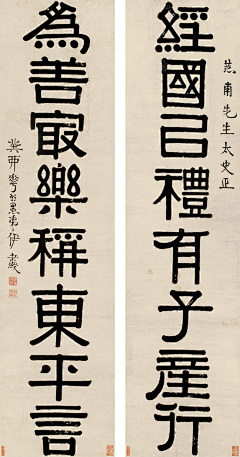 甫先生太史正
經國㠯禮有子產行
為善㝡樂稱東平言
愚弟伊秉綬